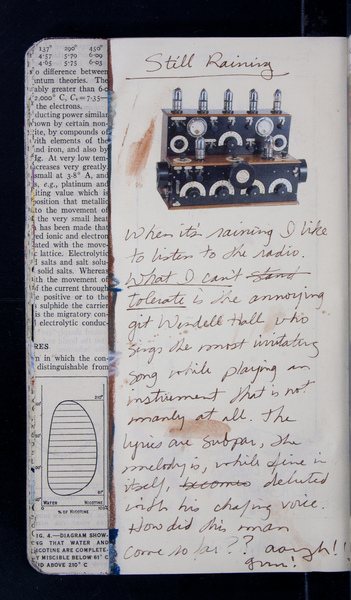 137° 290° 450°
4·57 5·70 6·09
4·05 5·75 6·03
o difference between
ntum theories. The
ably greater than 6·
2,000° C, Cᵥ=7·35—
the electrons.
ducting power similar
hown by certain non-
ite, by compounds o
ith elements of the
nd iron, and also by
ig. At very low tem-
creases very greatly
small at 3·8° A, and
s, e.g., platinum and
iting value which is
position that metallic
to the movement of
the very small heat
has been made that
ed ionic and electron
ated with the move-
lattice. Electrolytic
l salts and salt solu-
solid salts. Whereas
h the movement of
the current through
e positive or to the
sulphide the carrier
is the migratory con-
electrolytic conduc-
RES
n in which the con
distinguishable from
210°
61°
WATER NICOTINE
% OF NICOTINE
IG. 4.—DIAGRAM SHOW-
NG THAT WATER AND
ICOTINE ARE COMPLETE-
Y MISCIBLE BELOW 61° C
ND ABOVE 210° C
Still Raining
When it's raining I like
to listen to the radio.
What I can't stand
tolerate is the annoying
git Wendell Hall who
sings the most irritating
song while playing an
instrument that is not
manly at all. The
lyrics are subpar, the
melody is, while fine in
itself, becomes deluted
with his chafing voice.
How did this man
come so far?? aargh!!
grrr!